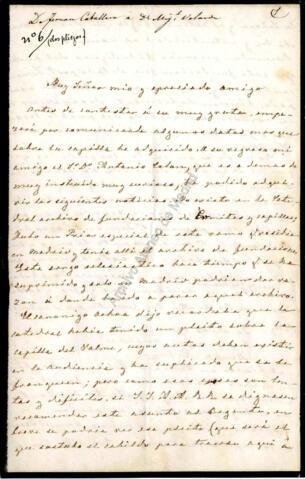 D. Fernan Caballero a D. Mig.l Velarde
nº 6/(dos pliegos)
Muy Señor mio y apreciado amigo
Antes de contestar á su muy grata, empe-
zaré por comunicarle algunos datos mas que
sobre la capilla he adquirido. A su regreso mi
amigo el Sr. Dn. Antonio Colom, que es a demas de
muy instruido muy curioso, ha podido adqui-
rir las siguientes noticias. No existe en la Ca-
tedral archivo de fundacion de Ermitas y capillas,
hubo un Juez especial en este ramo, residia
en Madrid y tenia allí el archivo de fundaciones.
Este cargo eclesiastico hace tiempo q.e se ha
suprimido y solo en Madrid podrian dar ra-
zon á donde ha ido a parar aquel archivo.
El canonigo achaa dejo recordaba que la
catedral habia tenido un pleito sobre la
capilla del Valme, cuyos autos deben existir
en la Audiencia y ha suplicado que se le
franqueen; pero como esas cosas son len-
tas y dificiles, si S.S.A.A.R.R. se dignasen
recomendar este asunto al Regente, en
breve se podria ver ese pleito (que será el
que sostubo el cabildo para traerse aquí á